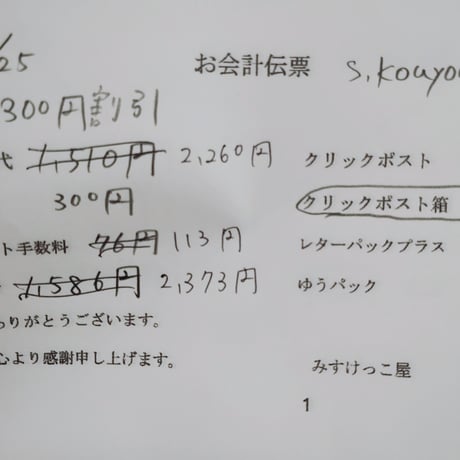 /25 お会計伝票 S.Kouyo
300円割引
代 1,510円 2,260円 クリックポスト
300円 クリックポスト箱
ト手数料 76円 113円 レターパックプラス
1,586円 2,373円 ゆうパック
りがとうございます。
心より感謝申し上げます。 みすけっこ屋
1